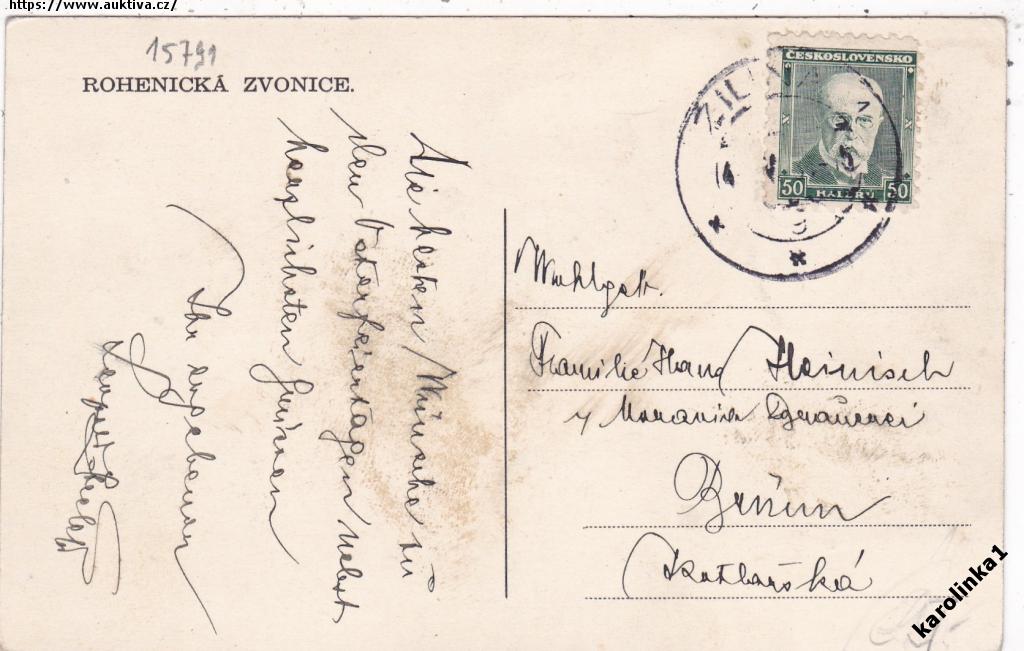 https://www.auktiva.cz/
15791
ROHENICKÁ ZVONICE.
ČESKOSLOVENSKO
50 HALÉŘŮ 50
ŽILINA
Die besten Wünsche zu
den Osterfeiertagen nebst
herzlichsten Grüssen
Ihr ergebener
Wohlgeb.
Familie Hans Heinisch
Brünn
karolinka1